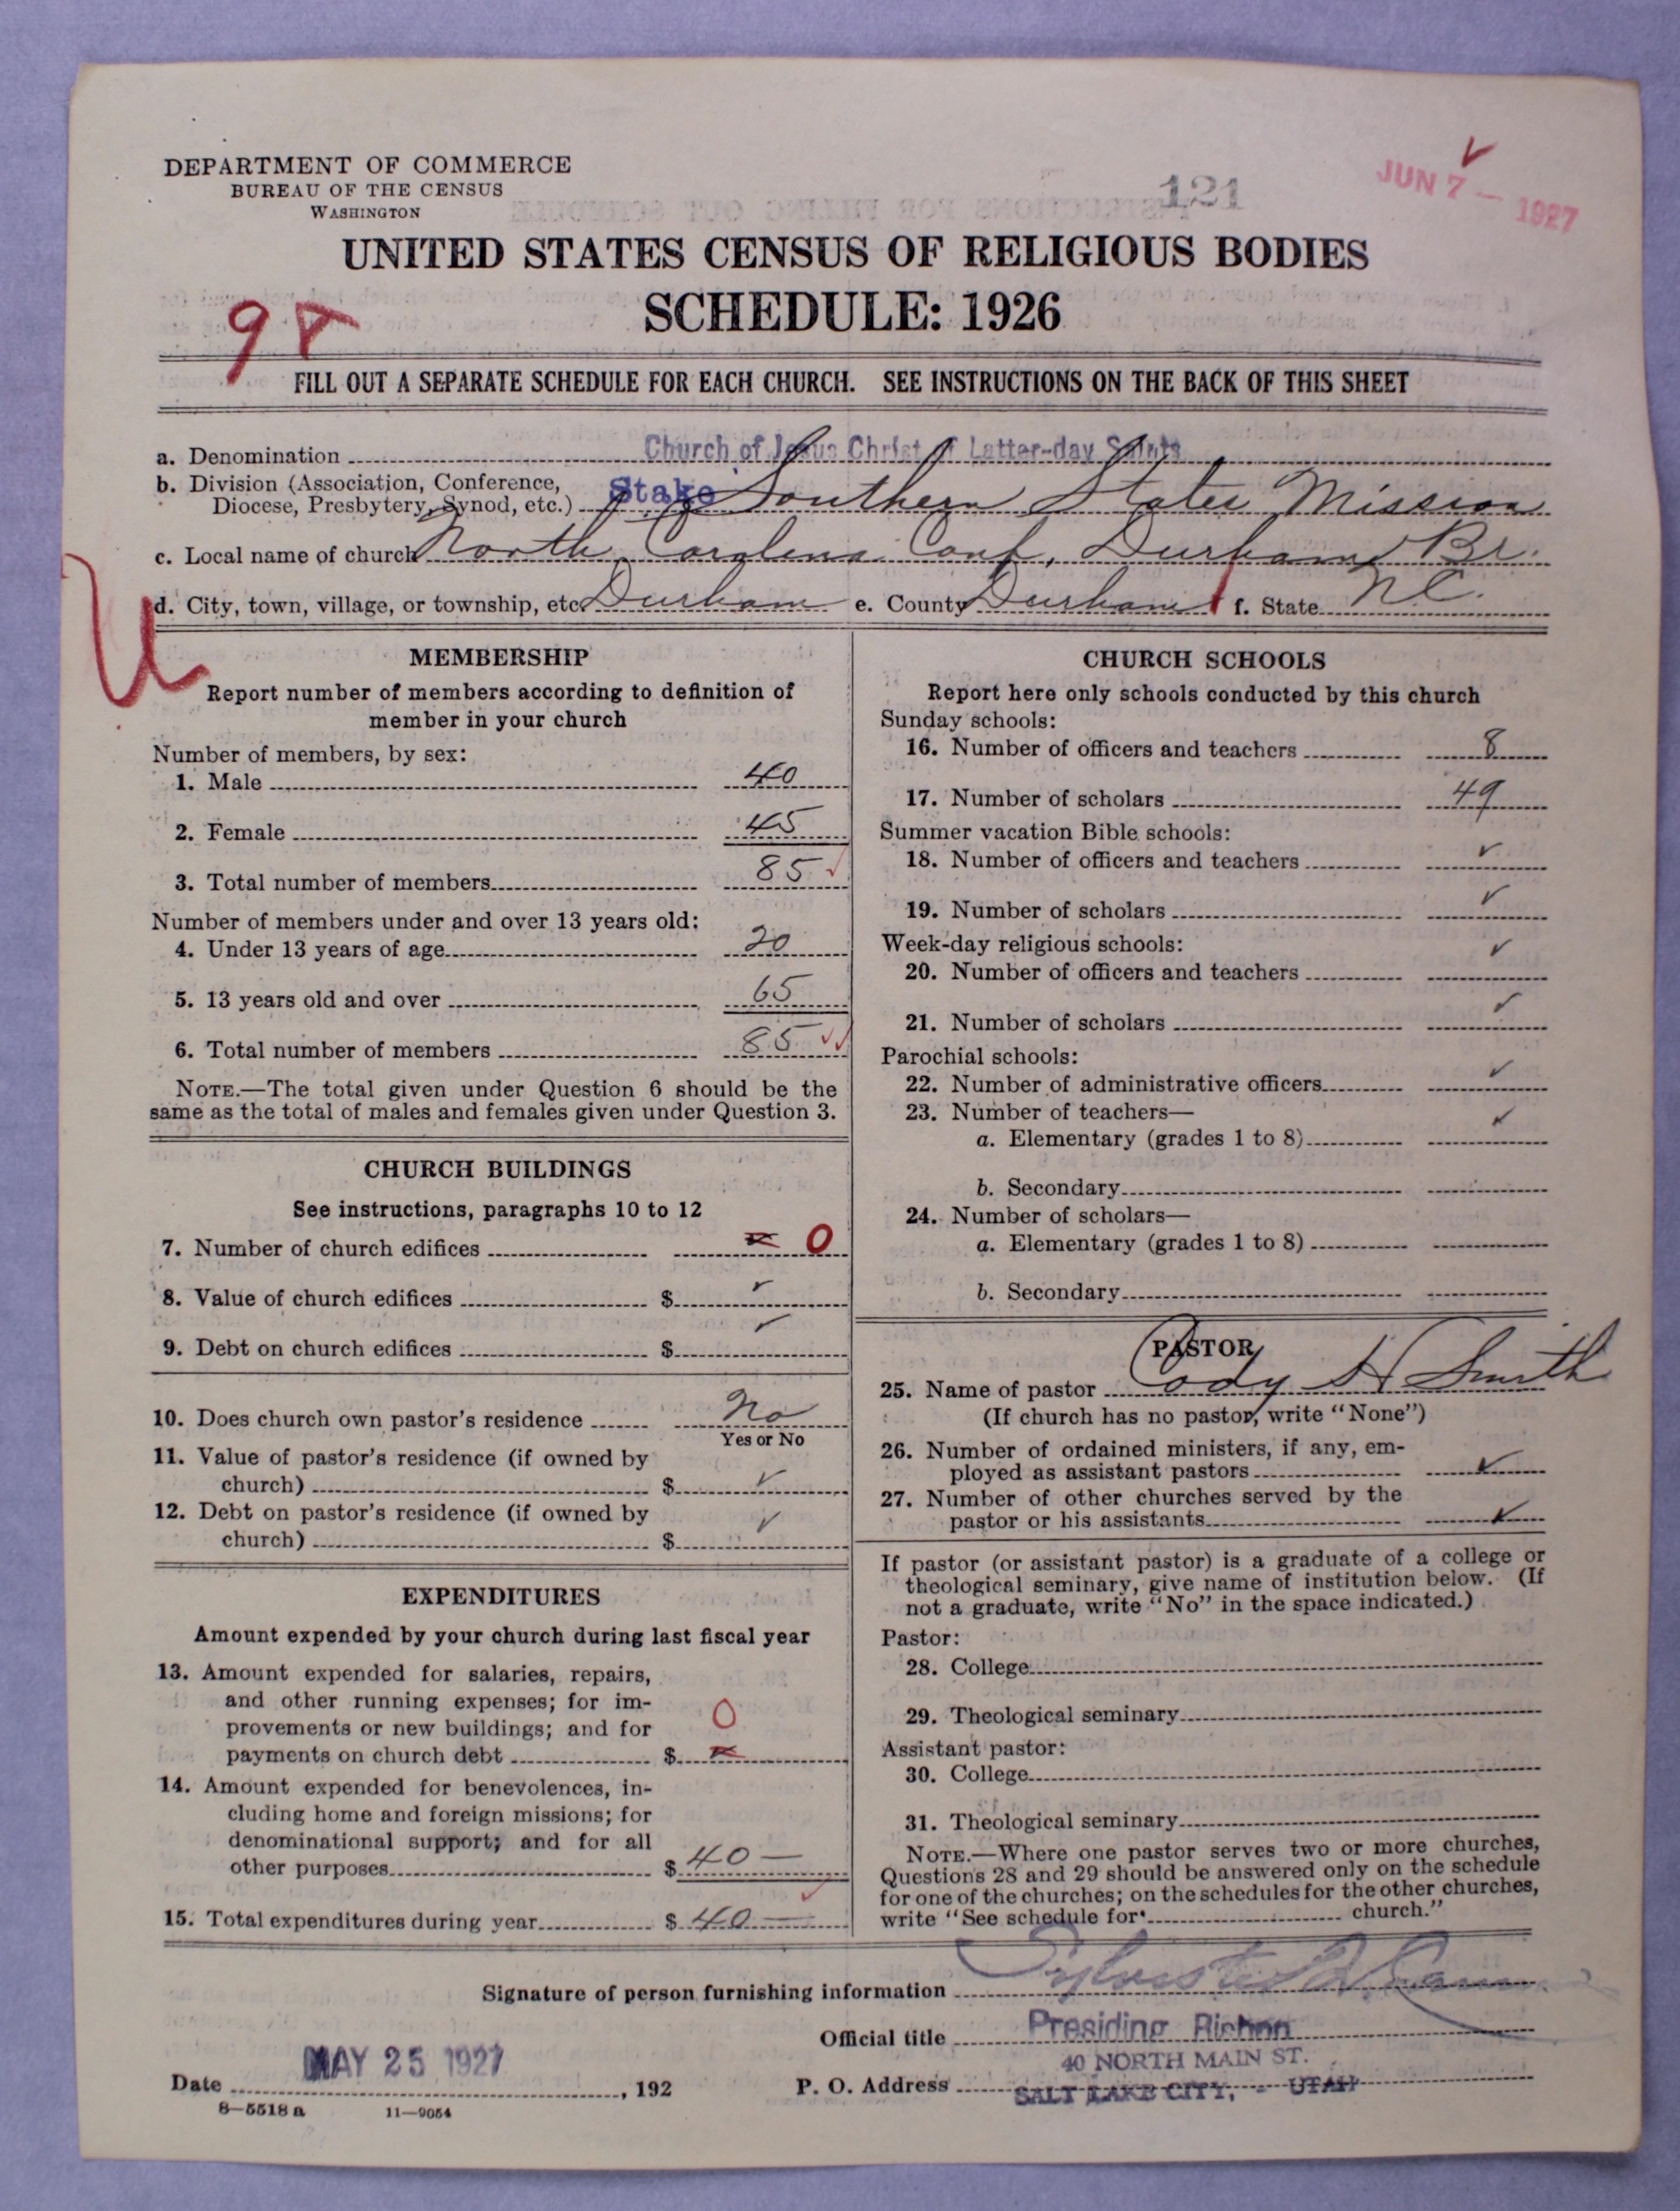 DEPARTMENT OF COMMERCE
BUREAU OF THE CENSUS
WASHINGTON
121
JUN 7 — 1927
UNITED STATES CENSUS OF RELIGIOUS BODIES
SCHEDULE: 1926
98
FILL OUT A SEPARATE SCHEDULE FOR EACH CHURCH. SEE INSTRUCTIONS ON THE BACK OF THIS SHEET
a. Denomination Church of Jesus Christ of Latter-day Saints
b. Division (Association, Conference,
Diocese, Presbytery, Synod, etc.) Stake Southern States Mission
c. Local name of church North Carolina Conf, Durham Br.
d. City, town, village, or township, etc. Durham e. County Durham f. State N.C.
U
MEMBERSHIP
Report number of members according to definition of
member in your church
Number of members, by sex:
1. Male 40
2. Female 45
3. Total number of members 85 ✓
Number of members under and over 13 years old:
4. Under 13 years of age 20
5. 13 years old and over 65
6. Total number of members 85 ✓✓
NOTE.—The total given under Question 6 should be the
same as the total of males and females given under Question 3.
CHURCH BUILDINGS
See instructions, paragraphs 10 to 12
7. Number of church edifices 0
8. Value of church edifices $ ✓
9. Debt on church edifices $ ✓
10. Does church own pastor's residence No
Yes or No
11. Value of pastor's residence (if owned by
church) $ ✓
12. Debt on pastor's residence (if owned by
church) $ ✓
EXPENDITURES
Amount expended by your church during last fiscal year
13. Amount expended for salaries, repairs,
and other running expenses; for im-
provements or new buildings; and for
payments on church debt $ 0
14. Amount expended for benevolences, in-
cluding home and foreign missions; for
denominational support; and for all
other purposes $ 40 —
15. Total expenditures during year $ 40 —
CHURCH SCHOOLS
Report here only schools conducted by this church
Sunday schools:
16. Number of officers and teachers 8
17. Number of scholars 49
Summer vacation Bible schools:
18. Number of officers and teachers ✓
19. Number of scholars ✓
Week-day religious schools:
20. Number of officers and teachers ✓
21. Number of scholars ✓
Parochial schools:
22. Number of administrative officers ✓
23. Number of teachers—
a. Elementary (grades 1 to 8) ✓
b. Secondary
24. Number of scholars—
a. Elementary (grades 1 to 8)
b. Secondary
PASTOR
25. Name of pastor Cody H Smith
(If church has no pastor, write "None")
26. Number of ordained ministers, if any, em-
ployed as assistant pastors ✓
27. Number of other churches served by the
pastor or his assistants ✓
If pastor (or assistant pastor) is a graduate of a college or
theological seminary, give name of institution below. (If
not a graduate, write "No" in the space indicated.)
Pastor:
28. College
29. Theological seminary
Assistant pastor:
30. College
31. Theological seminary
NOTE.—Where one pastor serves two or more churches,
Questions 28 and 29 should be answered only on the schedule
for one of the churches; on the schedules for the other churches,
write "See schedule for church."
Signature of person furnishing information Sylvester Q. Cannon
Official title Presiding Bishop
40 NORTH MAIN ST.
Date MAY 25 1927, 192 P. O. Address SALT LAKE CITY, - UTAH
8—5518 a 11—9054